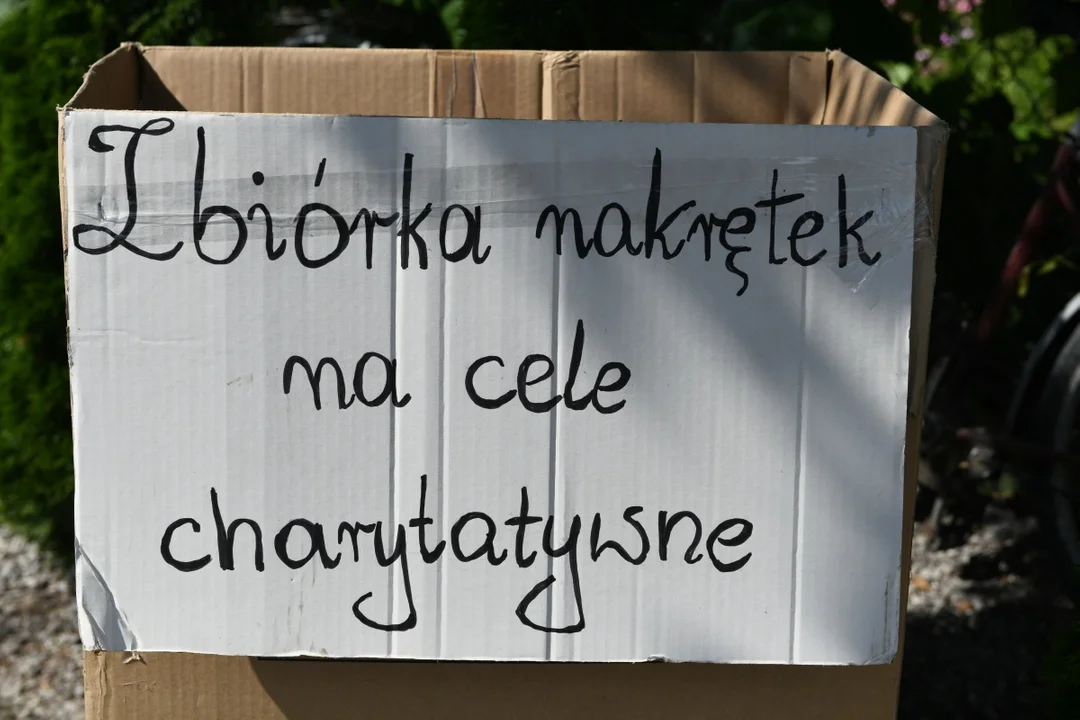 Zbiórka nakrętek
na cele
charytatywne